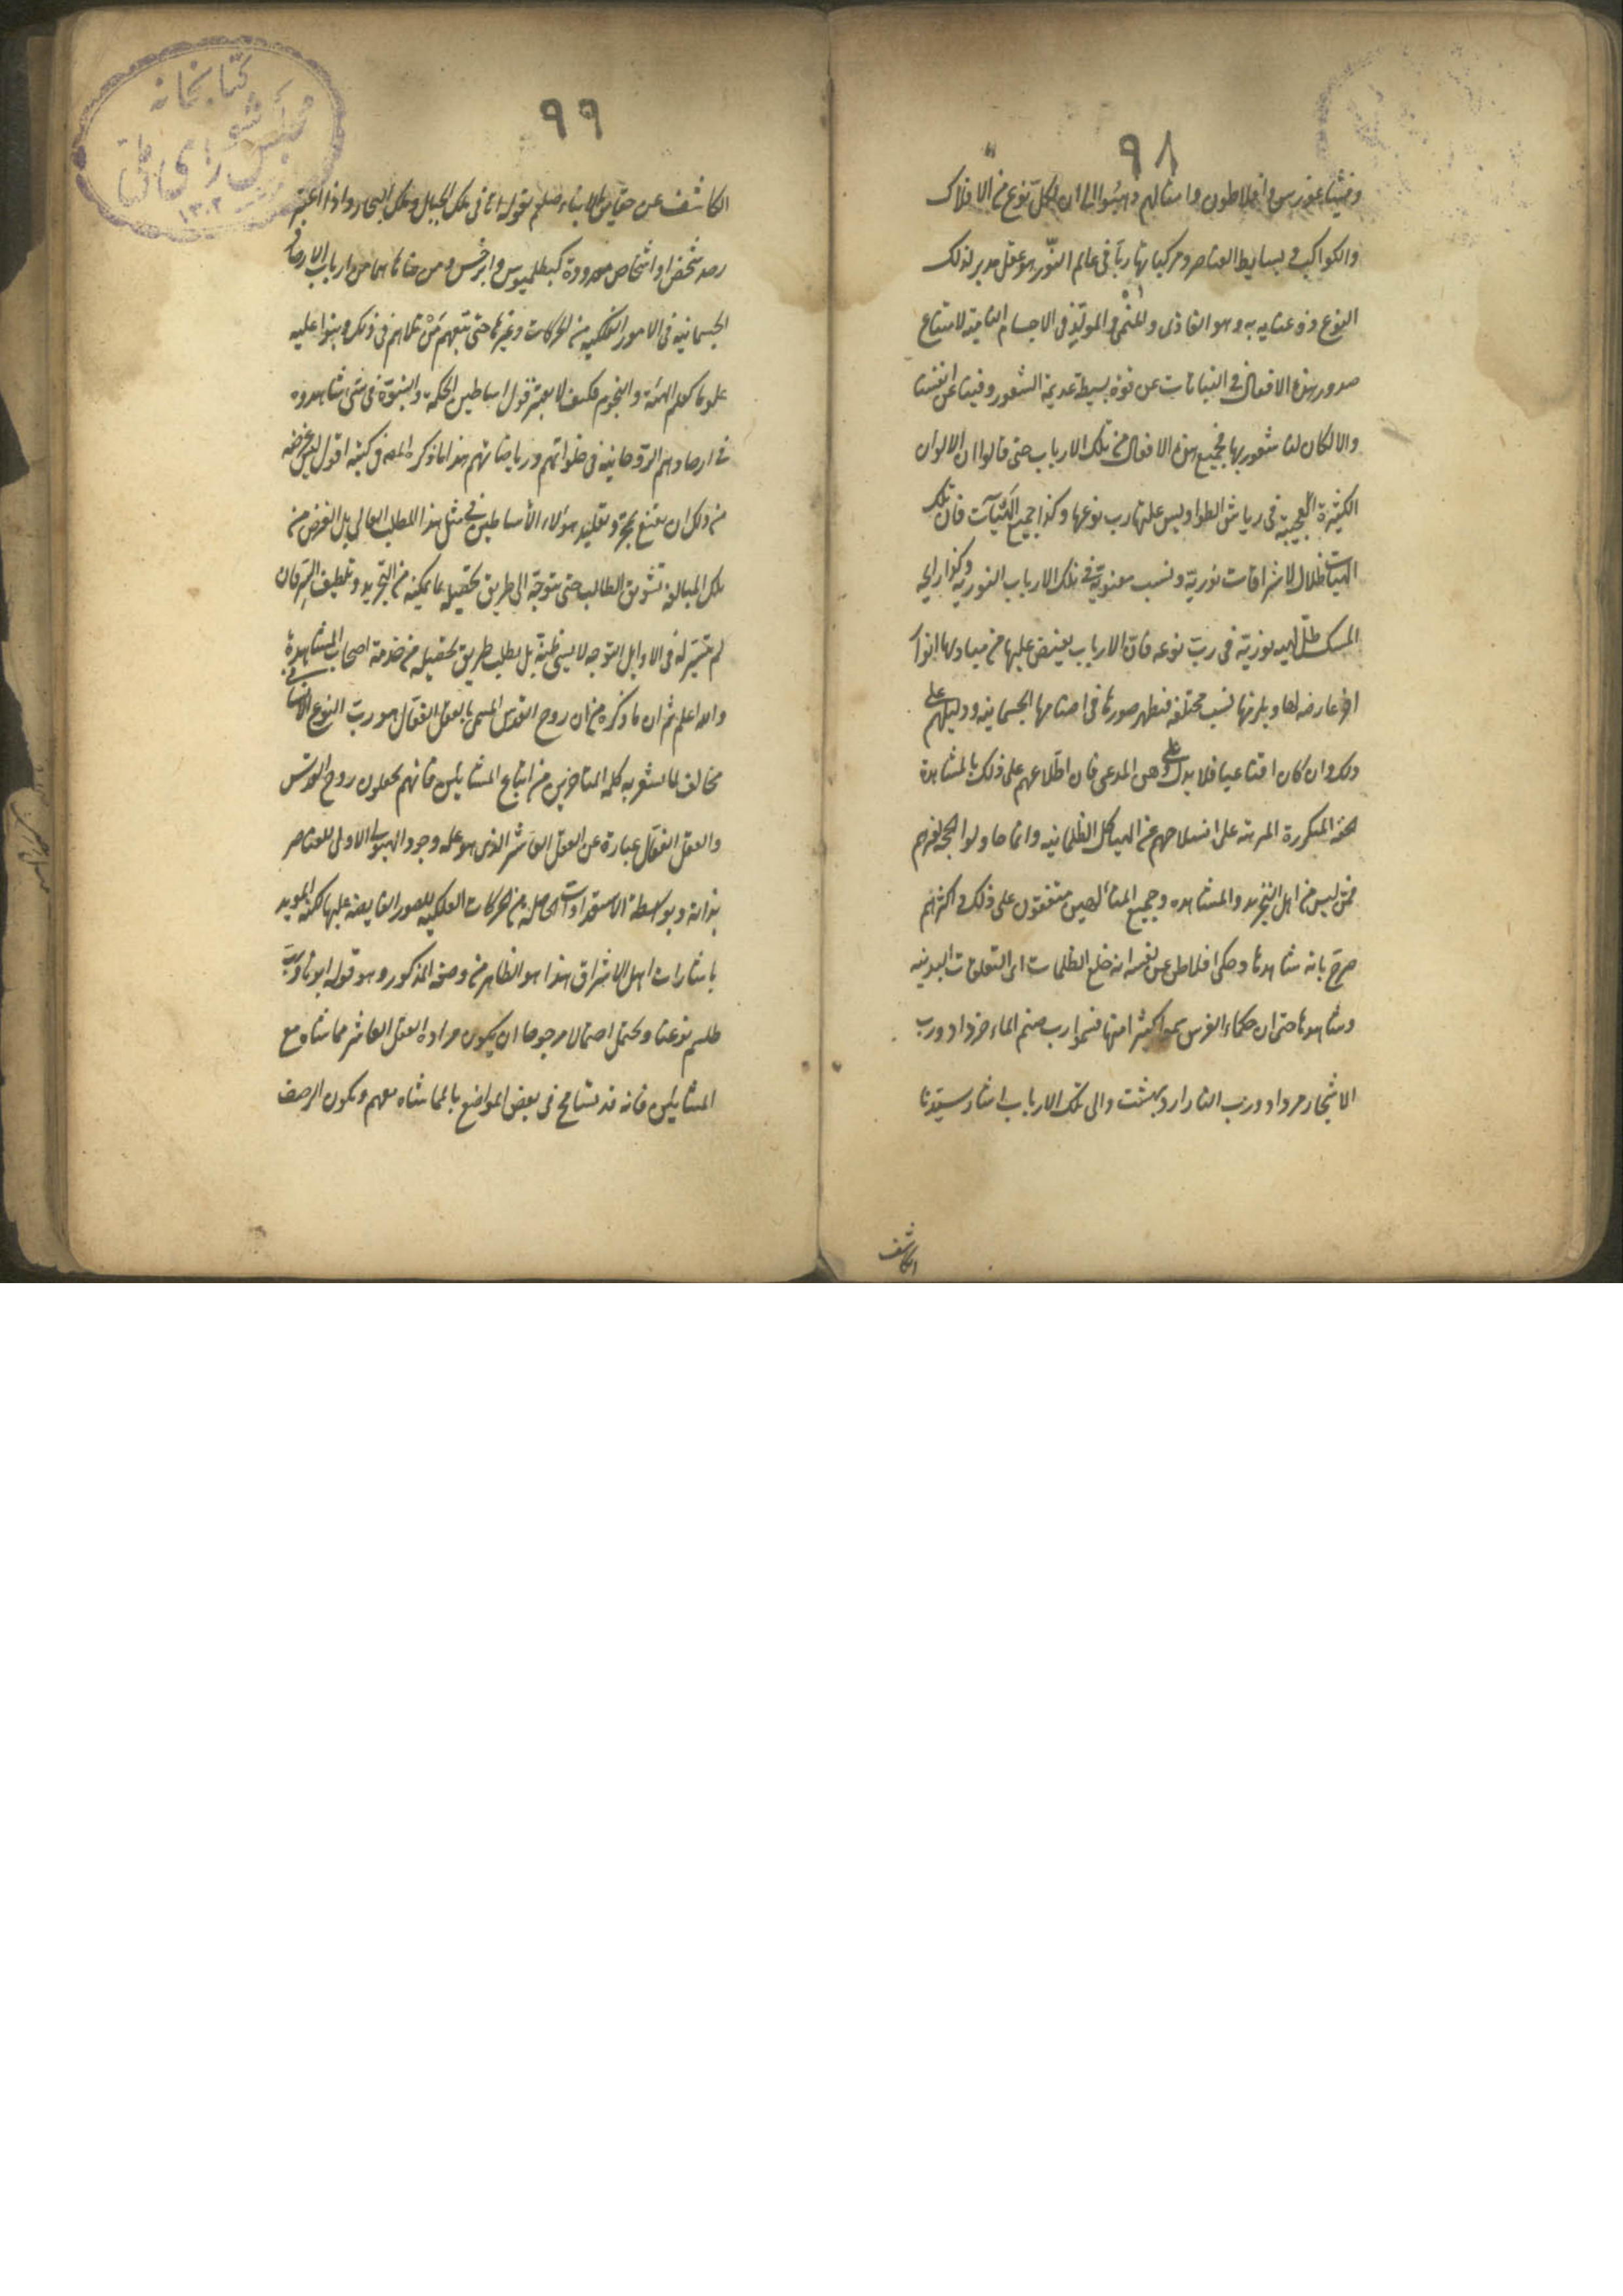 ٩٨
وفيثاغورس وافلاطون وامثالهم ذهبوا الى ان لكل نوع من الافلاك
والكواكب وبسايط العناصر ومركباتها ربا فى عالم النور هو عقل مدبر لذلك
النوع ذو عنايه به وهو الغاذى والمنمى والمولد فى الاجسام النامية لامتناع
صدور هذه الافعال فى النباتات عن قوة بسيطة عديمة الشعور وفينا عن انفسنا
والا لكان لنا شعور بها فجميع هذه الافعال من تلك الارباب حتى قالوا ان الالوان
الكثيرة العجيبة فى رياش الطواويس علتها رب نوعها وكذا جميع الهيآت فان تلك
الهيات ظلال لاشراقات نورية ونسب معنوية فى تلك الارباب النورية وكذا رايحة
المسك ظل لهيئة نورية فى رب نوعه فان الارباب يفيض عليها من مباديها انوار
اخر عارضه لها ويلزمها نسب مختلفه فتظهر صورها فى اصنامها الجسمانيه ودليلهم على
ذلك وان كان اقناعيا فلا يدل على وهن المدعى فان اطلاعهم على ذلك بالمشاهدة
الحقة المتكررة المترتبة على انسلاخهم عن الهياكل الظلمانيه وانما حاولوا الحجة لغيرهم
ممن ليس من اهل التجريد والمشاهده وجميع المتالهين متفقون على ذلك واكثرهم
صرح بانه شاهدها وحكى افلاطن عن نفسه انه خلع الظلمات اى التعلقات البدنيه
وشاهدها حتى ان حكماء الفرس سموا كثيرا منها فسموا رب صنم الماء خرداد ورب
الاشجار مرداد ورب النار ارديبهشت والى تلك الارباب اشار سيدنا
الكاشف
٩٩
الكاشف عن حقايق الاشياء صلعم بقوله اتانى ملك الجبال وملك البحار واذا اعتبر
رصد شخص او اشخاص معدودة كبطلميوس وابرخس ومن ضاهاهما من ارباب الارصاد
الجسمانيه فى الامور الفلكيه من الحركات وغيرها حتى تبعهم من تلاهم فى ذلك وبنوا عليه
علوما كعلم الهيئة والنجوم فكيف لا يعتبر قول اساطين الحكمة والنبوة فى شئ شاهدوه
فى ارصادهم الروحانيه فى خلواتهم ورياضاتهم هذا ما ذكره المص فى كتبه اقول ليس غرضه
من ذلك ان يقنع بمجرد تقليد هؤلاء الأساطين فى مثل هذا المطلب العالى بل الغرض من
تلك المبالغة تشويق الطالب حتى يتوجه الى طريق تحصيله بما يمكنه من التجريد وتلطيف السر فان
لم يتيسر له فى الاوايل التوجه لا يسئ ظنه بل يطلب طريق تحصيله من خدمة اصحاب المشاهدة
والله اعلم ثم ان ما ذكره من ان روح القدس المسمى بالعقل الفعال هو رب النوع الانسانى
مخالف لما يشعر به كلمة المتاخرين من اتباع المشائين فانهم يجعلون روح القدس
والعقل الفعال عبارة عن العقل العاشر الذى هو علة وجود الهيولى الاولى للعناصر
بذاته وبواسطة الاستعدادات الحاصله من الحركات الفلكيه للصور الفايضة عليها لكنه المويد
باشارات اهل الاشراق هذا هو الظاهر من وصفه المذكور وهو قوله ابونا ورب
طلسم نوعنا ويحتمل احتمالا مرجوحا ان يكون مراده العقل العاشر مماشاة مع
المشائين فانه قد يتسامح فى بعض المواضع بالمماشاه معهم ويكون الوصف
كتابخانه
مجلس شوراى ملى
١٣٠٢